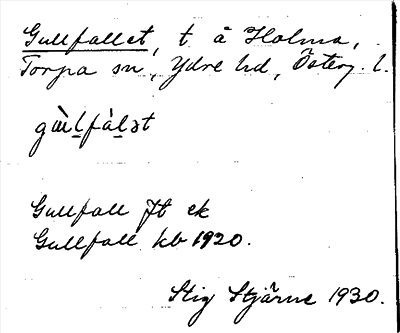 Gullfallet, t å Holma,
Torpa sn, Ydre hd, Österg. l.
Gullfall Jt ek
Gullfall kb 1920.
Stig Stjärne 1930.